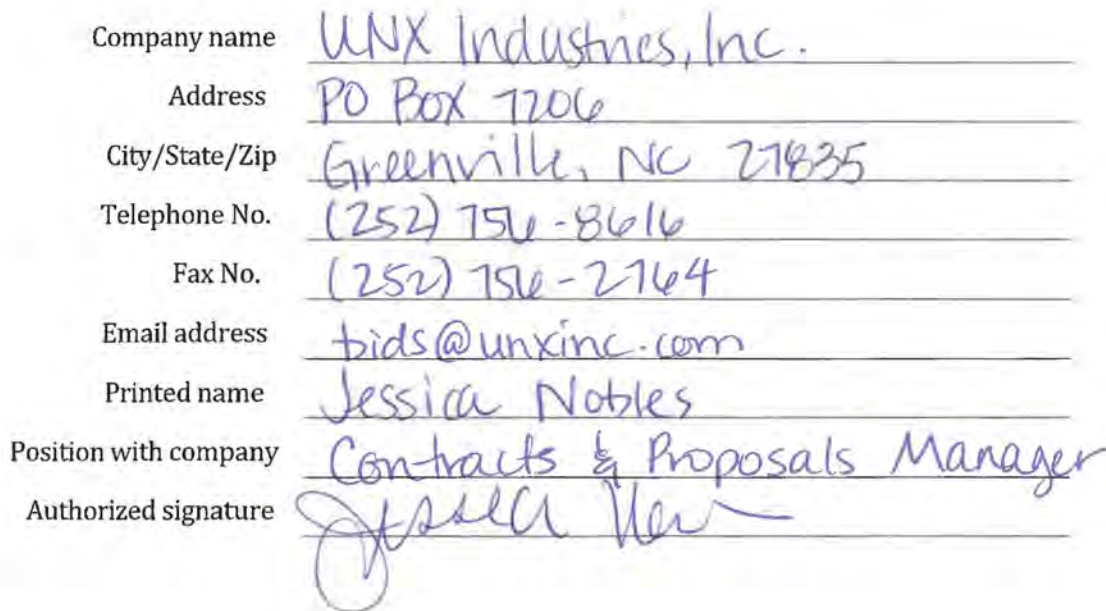 Company name UNX Industries, Inc.
Address PO Box 7206
City/State/Zip Greenville, NC 27835
Telephone No. (252) 756-8616
Fax No. (252) 756-2764
Email address bids@unxinc.com
Printed name Jessica Nobles
Position with company Contracts & Proposals Manager
Authorized signature Jessica